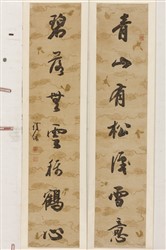 青山有松護雪意
碧落無雲稱鶴心